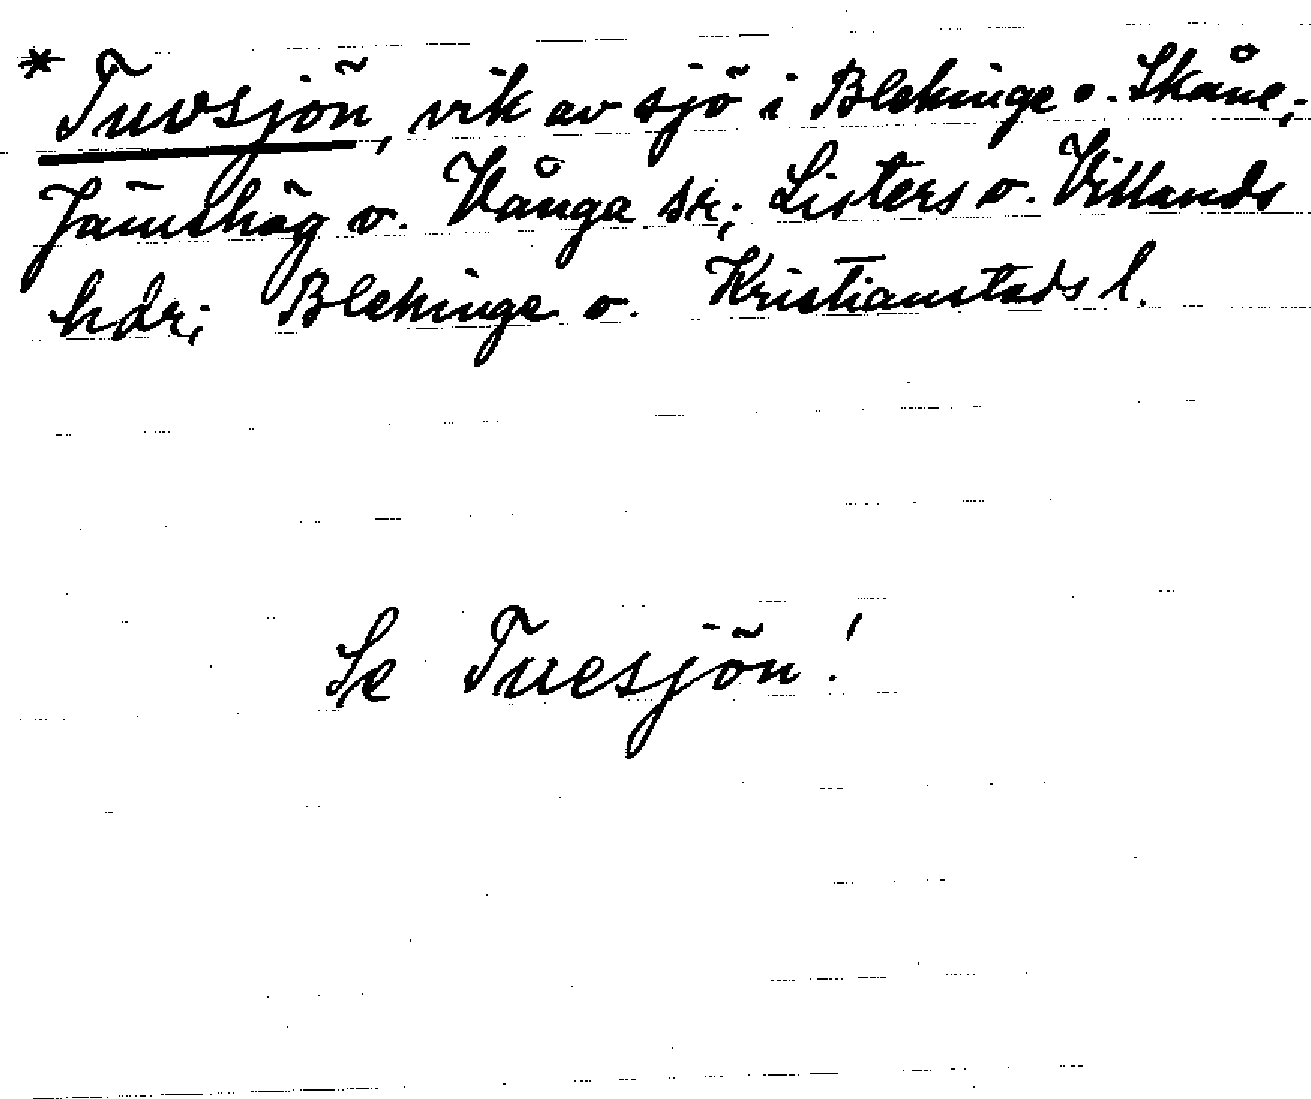 * Tuvsjön, vik av sjö i Blekinge o. Skåne,
Jämshög o. Vånga sr; Listers o. Villands
hdr; Blekinge o. Kristianstads l.
Se Tuesjön!